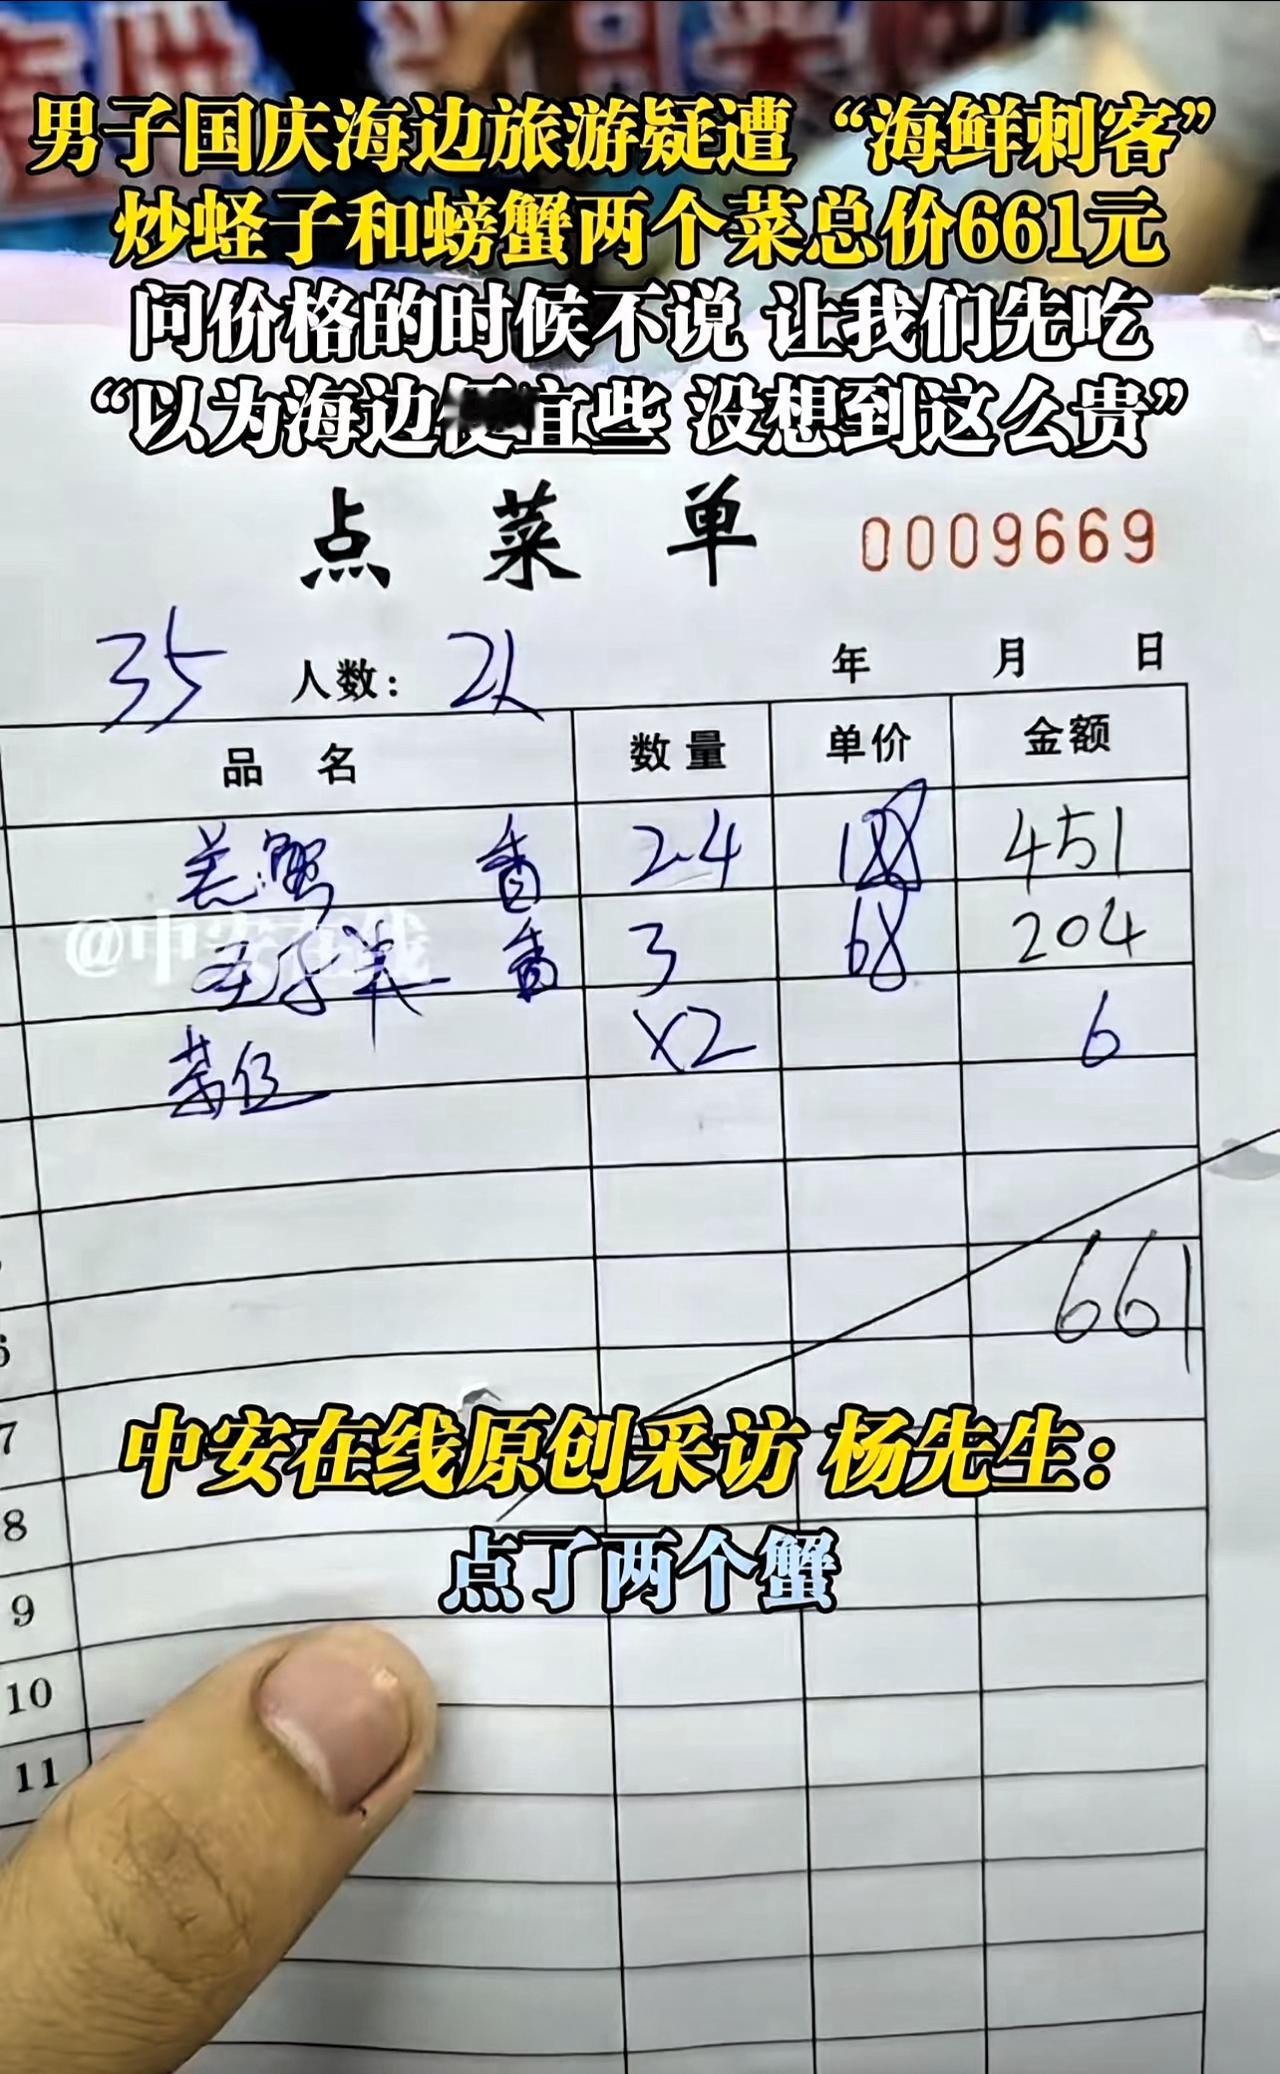 男子国庆海边旅游疑遭“海鲜刺客”
炒蛏子和螃蟹两个菜总价661元
问价格的时候不说 让我们先吃
“以为海边便宜些 没想到这么贵”
点菜单 0009669
35 人数: 2人 年 月 日
品名 数量 单价 金额
羔蟹 香 2.4 188 451
@中安在线
3 68 204
茶位 x2 6
661
6
7
中安在线原创采访 杨先生:
8
点了两个蟹
9
10
11